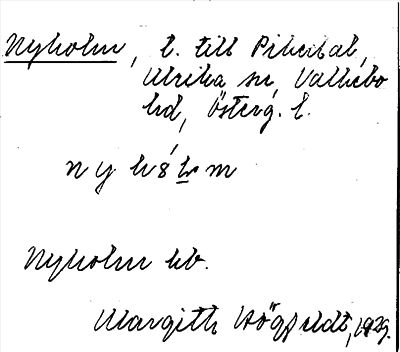 Nyholm, l. till Pikedal,
Ulrika sn, Valkebo
hd, Österg. l.
n y h 8 l m
Nyholm kb.
Margith Högfeldt, 1929.